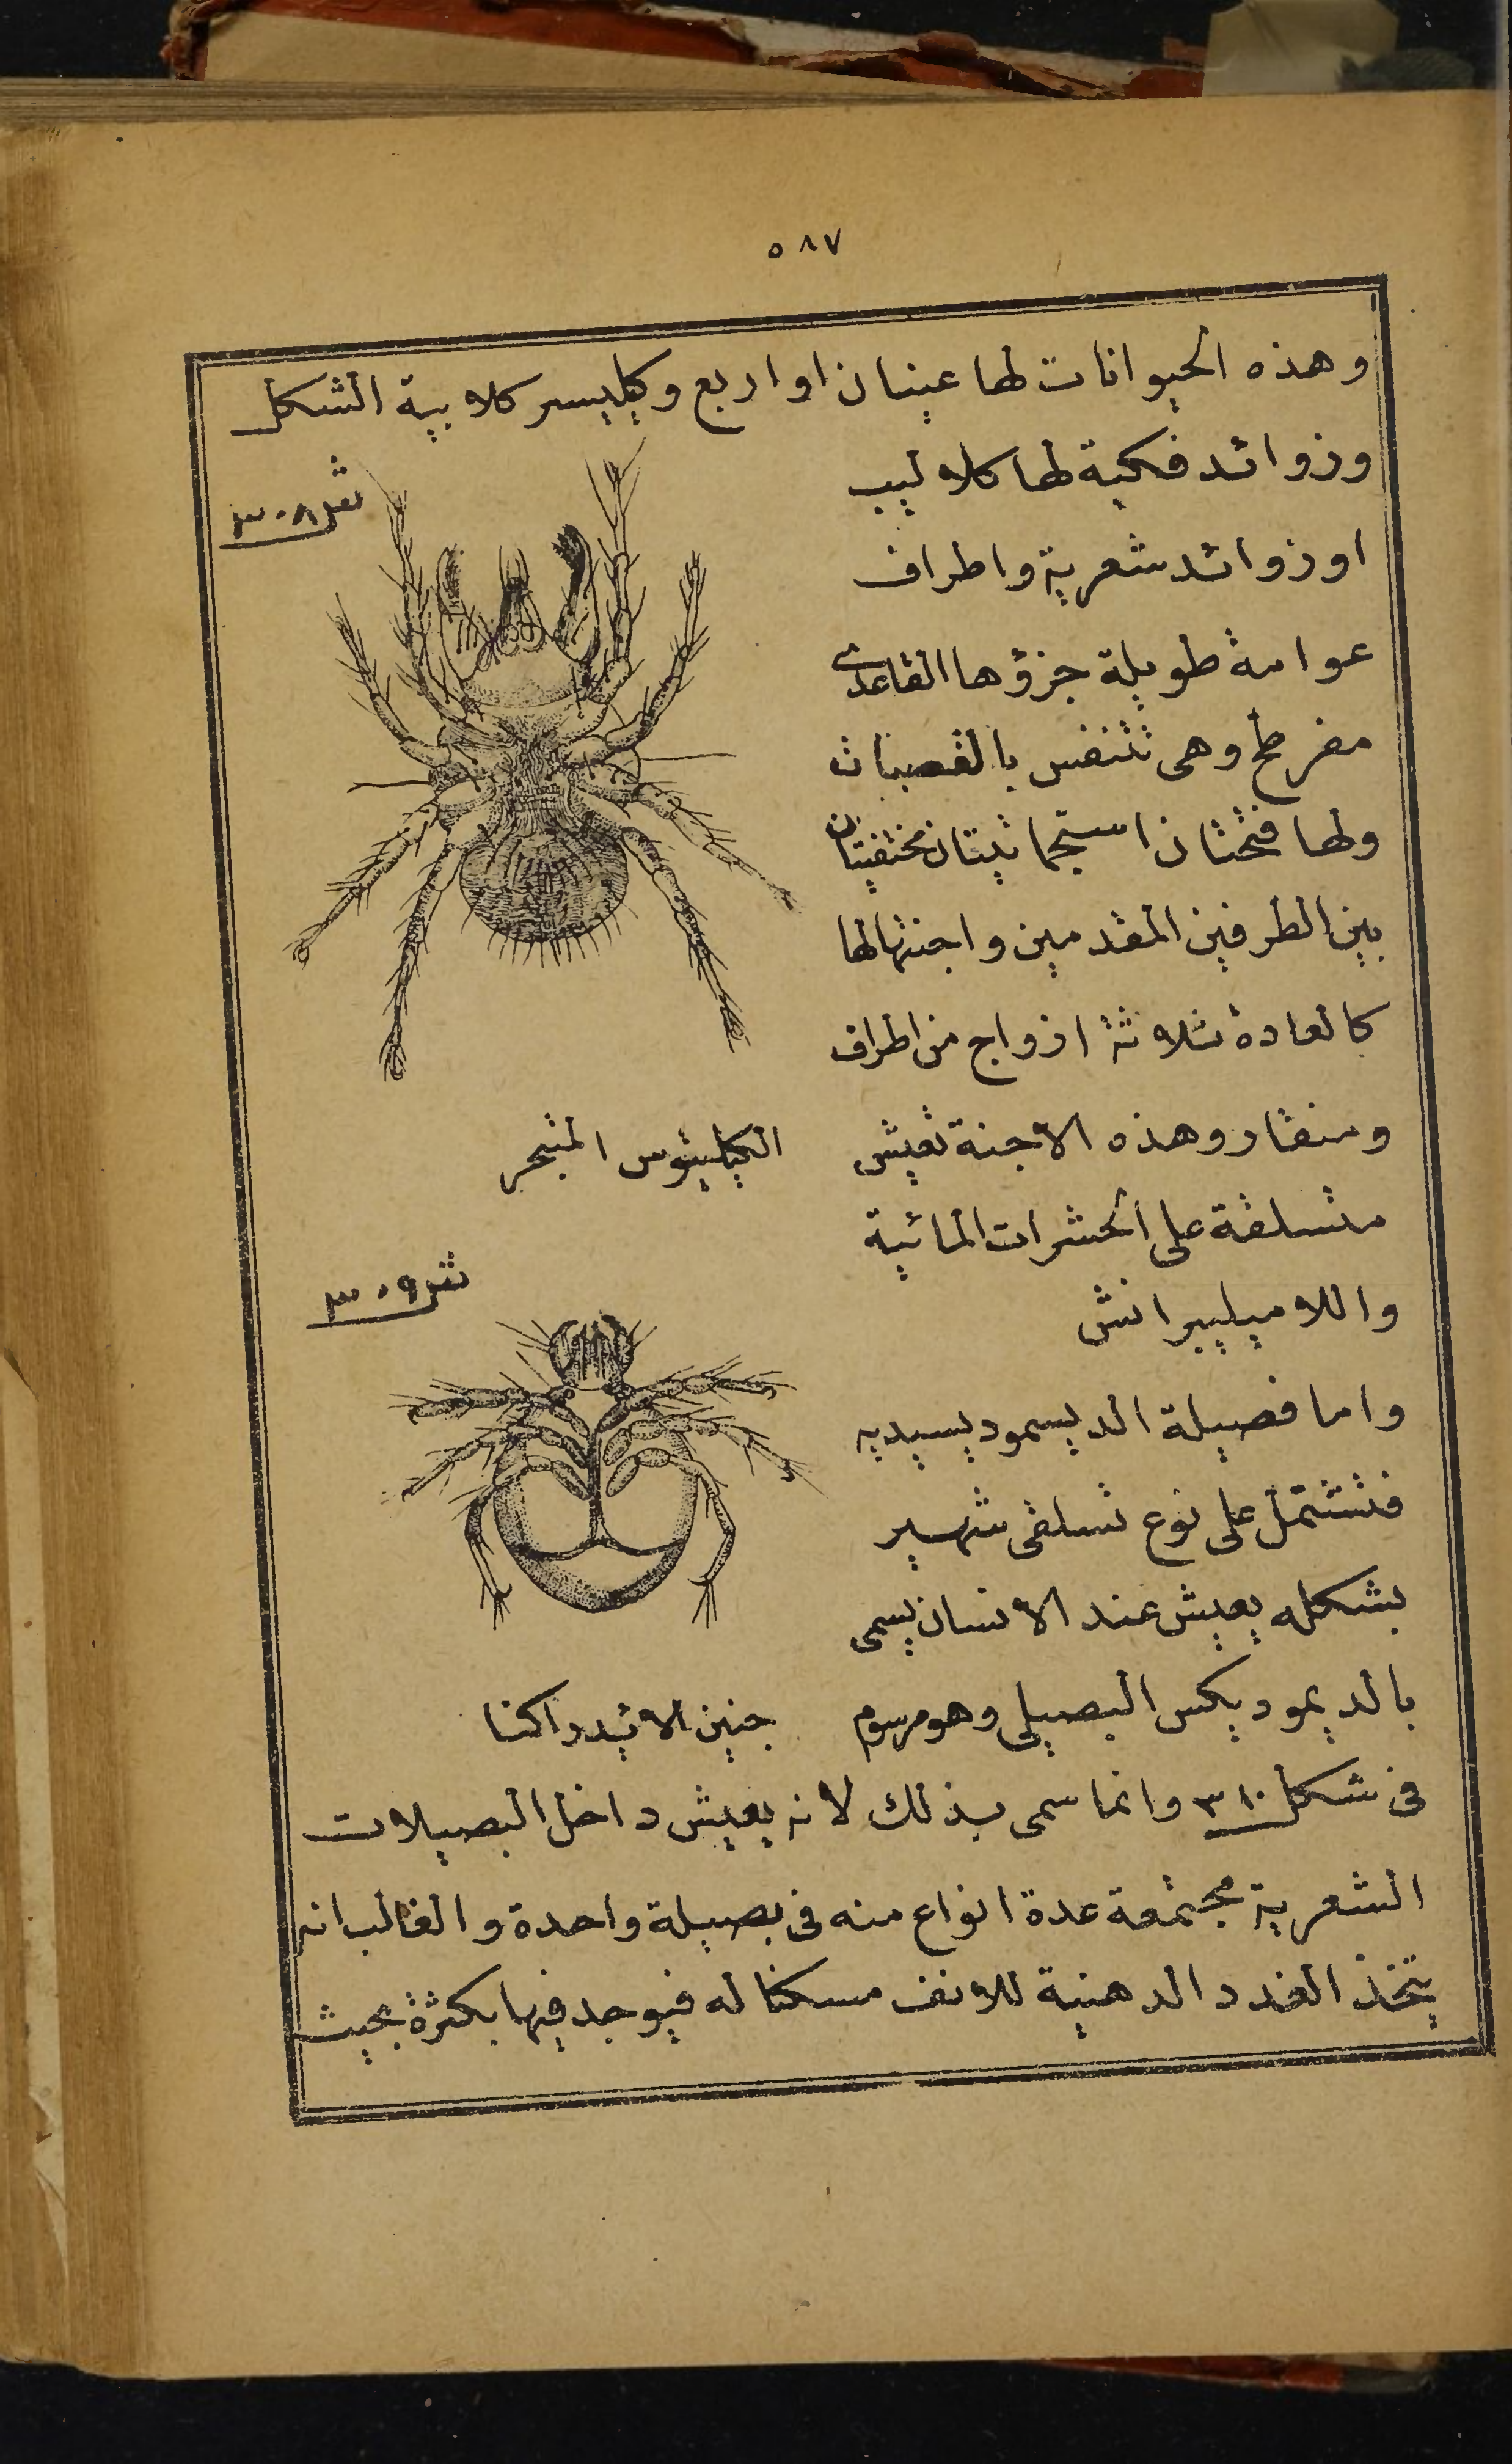 ٥٨٧
وهذه الحيوانات لها عينان او اربع وكيليسر كلابية الشكل
وزوائد فكية لها كلاليب
شكل ٣٠٨
او زوائد شعرية واطراف
عوامة طويلة جزؤها القاعدى
مفرطح وهى تتنفس بالقصبات
ولها فتحتان استجماتيتان مختفيتان
بين الطرفين المقدمين واجنتها لها
كالعادة ثلاثة ازواج من اطراف
ومنقار وهذه الاجنة تعيش
الكيليتوس المتبحر
متسلقة على الحشرات المائية
واللاميليبرانش
شكل ٣٠٩
واما فصيلة الديسموديسيديه
فتشتمل على نوع تسلقى شهير
بشكله يعيش عند الانسان يسمى
بالديموديكس البصيلى وهو مرسوم
جنين الايدراكنا
فى شكل ٣١٠ وانما سمى بذلك لانه يعيش داخل البصيلات
الشعرية مجتمعة عدة انواع منه فى بصيلة واحدة والغالب انه
يتخذ الغدد الدهنية للانف مسكنا له فيوجد فيها بكثرة بحيث